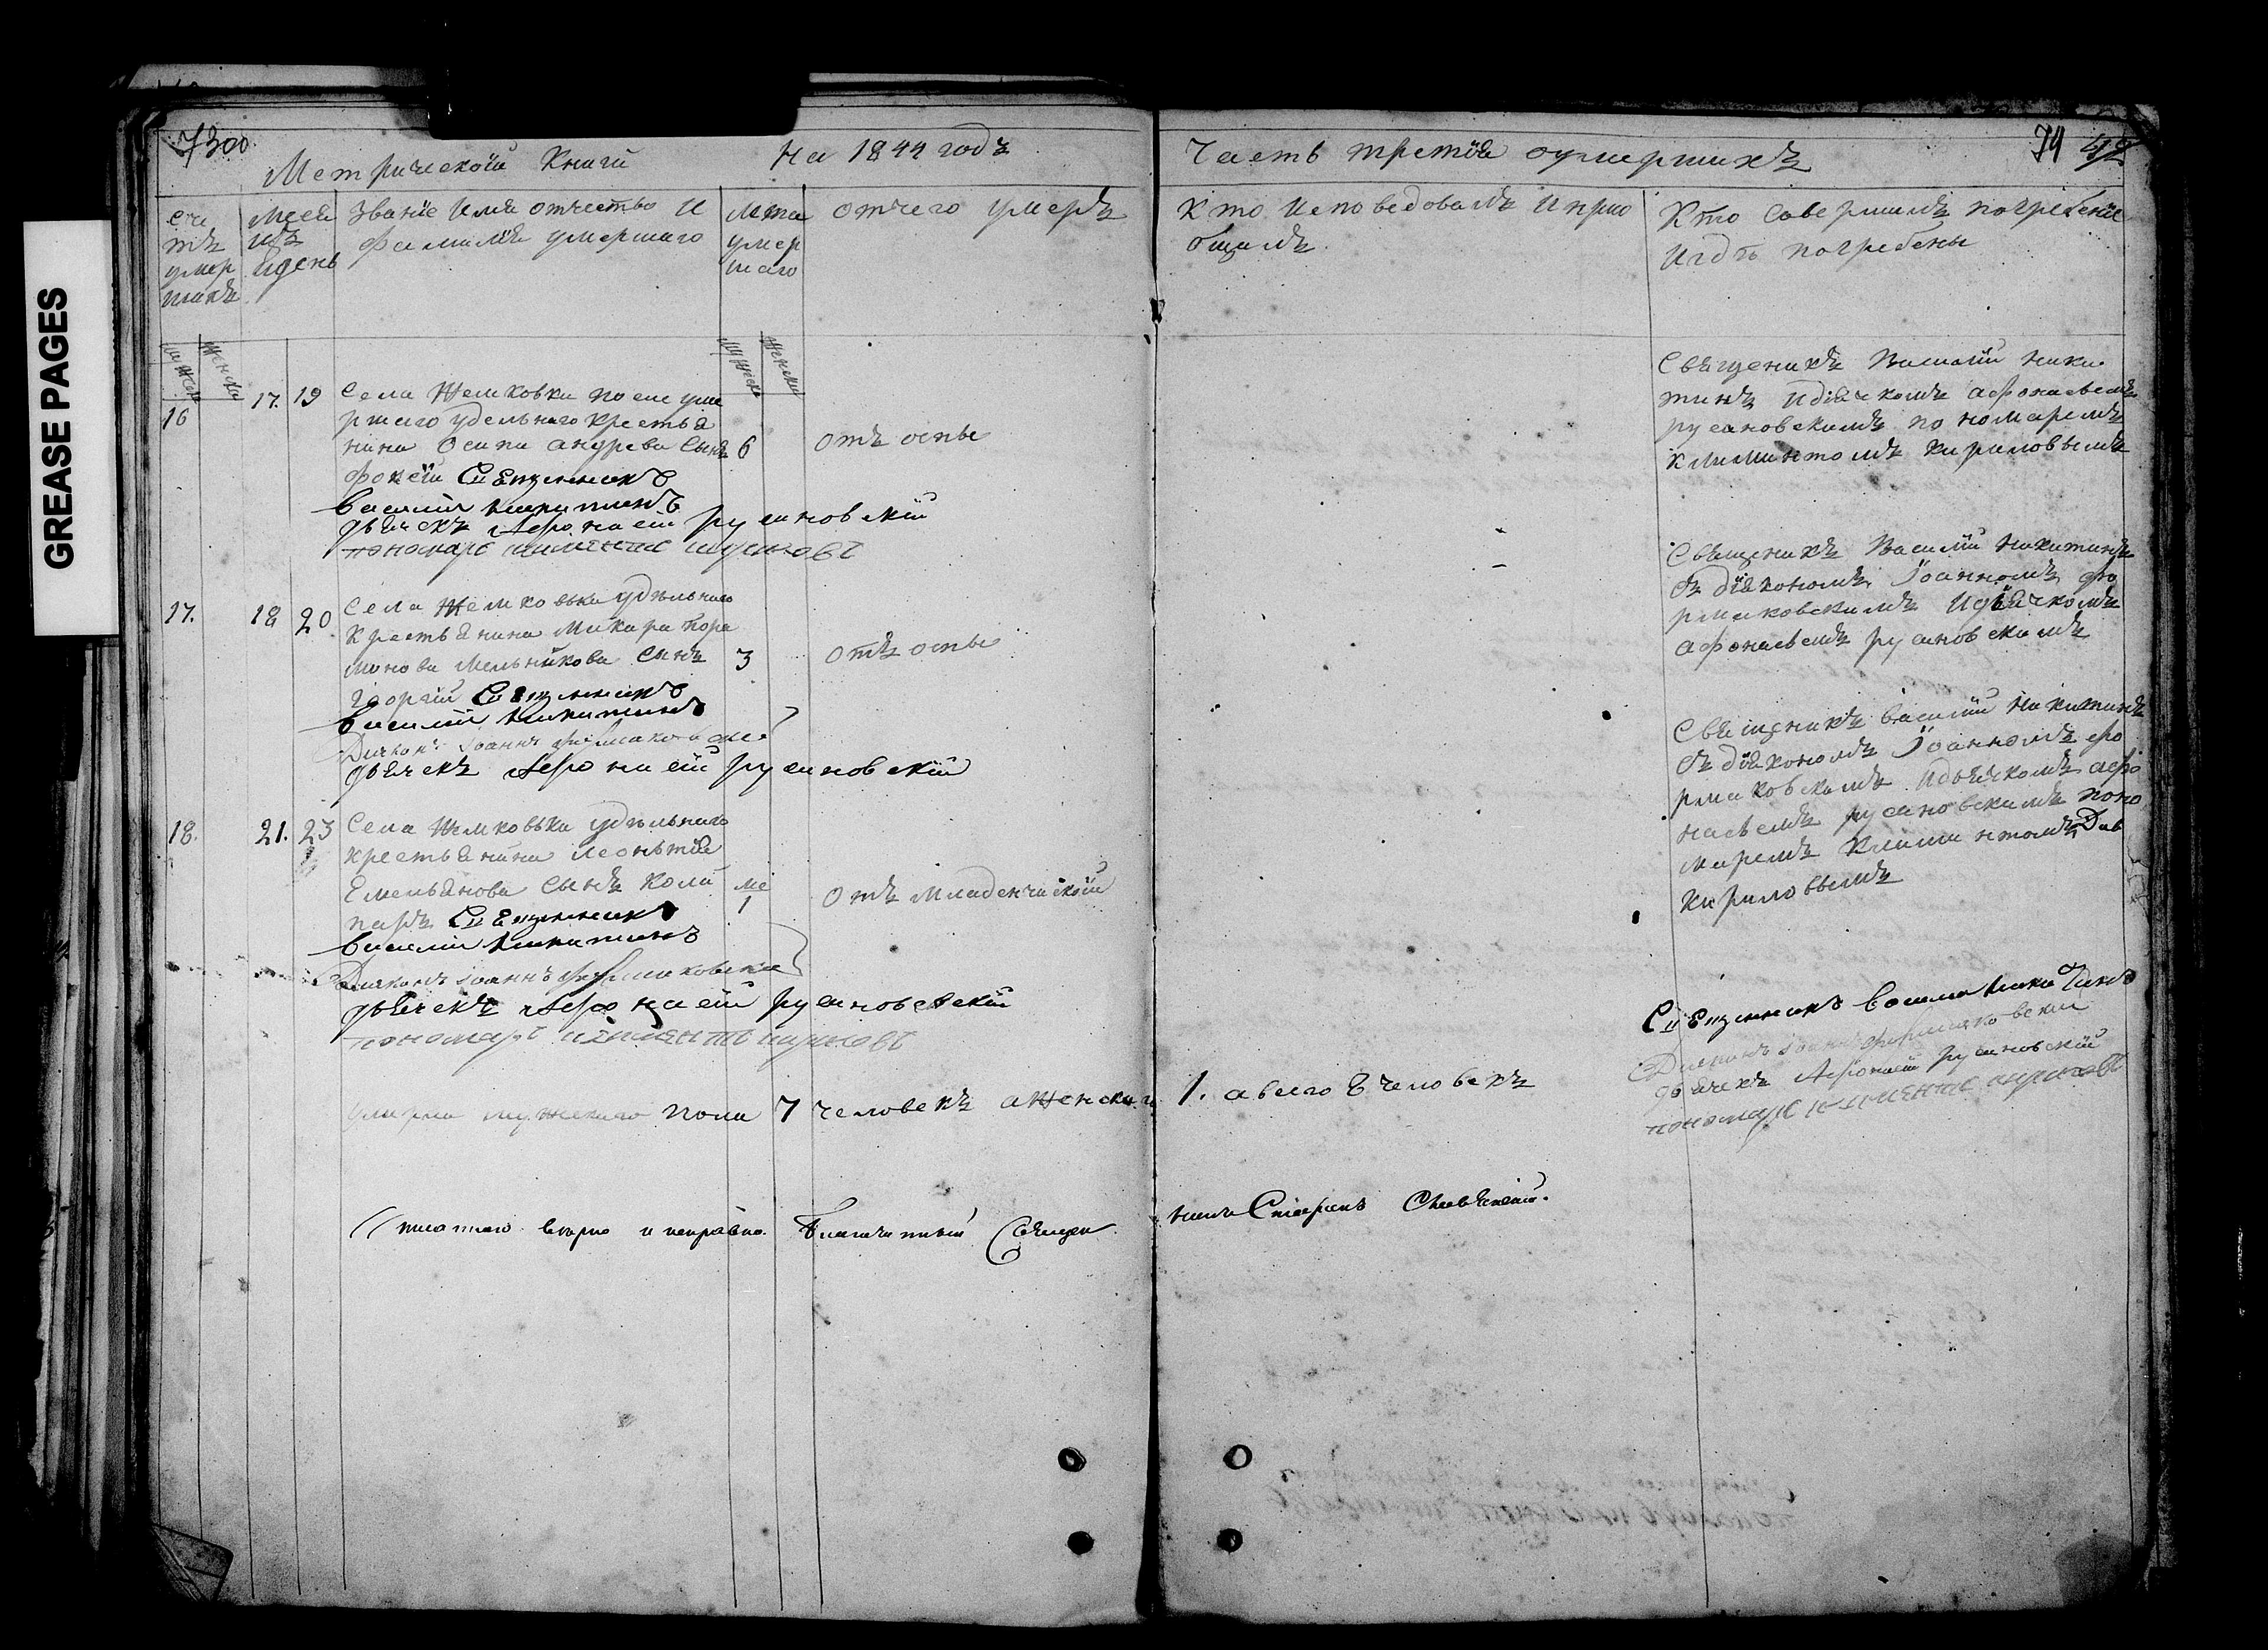 GREASE PAGES
7300
Метрической Книги На 1844 годъ
Часть третія оумершихъ
74 42
Сче
тъ
умер
шихъ
Меся
цъ
и день
званіе имя отчество и
фамилія умершаго
Лета
умер
шаго
отчего умеръ
Кто исповедовалъ и прио
бщалъ
Кто Савершилъ погребеніе
и гдѣ погребены
мужеск
женска
мужеск
женска
16
17. 19
Села Жемковки после уме
ршаго удельнаго крестья
нина Осипа андрева Сынъ
фокей Священникъ
Василій Никитинъ
дьячекъ Афонасей русановскій
пономарь
6
отъ оспы
Священикъ Василій Ники
тинъ идьячкомъ афонасьемъ
русановскимъ пономаремъ
климинтомъ кириловымъ
17.
18 20
Села Жемковки удѣльнаго
Крестьянина Макара
Мельникова Сынъ
гаоргій Священникъ
Василій Никитинъ
Диаконъ Iоаннъ
дьячекъ Афонасей русановскій
3
отъ оспы
Священикъ Василій Никитинъ
съ діякономъ Іоанномъ фо
рмаковскимъ идьячкомъ
афонасьемъ русановскимъ
18.
21. 23
Села Жемковки удѣльнаго
крестьянина леонътія
Емельянова Сынъ
Священникъ
Василій Никитинъ
Диаконъ Iоаннъ
дьячекъ Афонасей русановскій
пономарь
ме
1
отъ младенческой
Священикъ василій Никитинъ
съ діякономъ Іоанномъ фо
рмаковскимъ идьячкомъ афо
насьемъ русановскимъ поно
маремъ
кириловымъ
Священникъ Никитинъ
Диаконъ Iоаннъ
дьячекъ Афонасей русановскій
пономарь
Умерли мужескаго пола 7 человекъ аженскаго 1. а всего 8 человекъ
Писанно вѣрно и исправно. Благочинный Священ
никъ Стефанъ